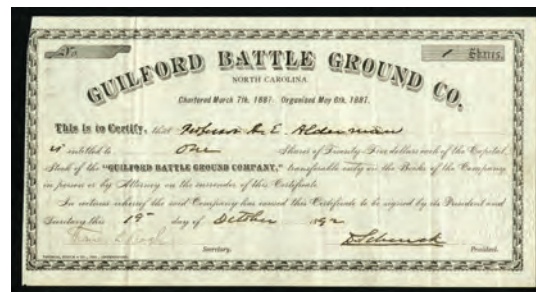 No.
1 Shares.
GUILFORD BATTLE GROUND CO.
NORTH CAROLINA.
Chartered March 7th, 1887. Organized May 6th, 1887.
This is to Certify, that Professor E. Alderman
is entitled to One Shares of Twenty-Five dollars each of the Capital
Stock of the "GUILFORD BATTLE GROUND COMPANY," transferable only on the Books of the Company
in person or by Attorney on the surrender of this Certificate.
In witness whereof the said Company has caused this Certificate to be signed by its President and
Secretary this 19th day of October 1892
D. Schenck
Secretary. President.